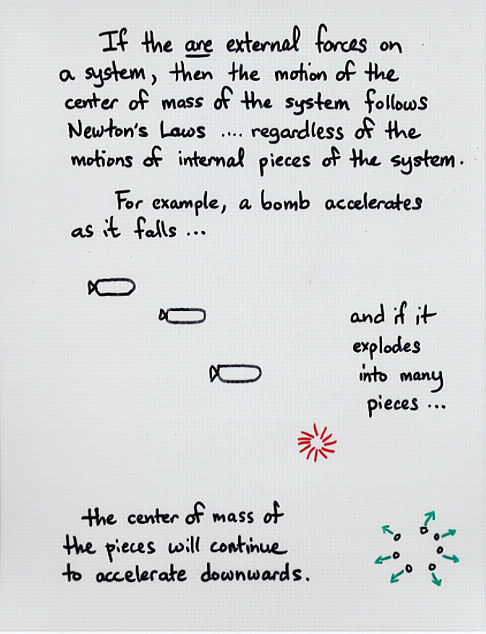 If the are external forces on
a system, then the motion of the
center of mass of the system follows
Newton's Laws .... regardless of the
motions of internal pieces of the system.
For example, a bomb accelerates
as it falls ...
and if it
explodes
into many
pieces ...
the center of mass of
the pieces will continue
to accelerate downwards.